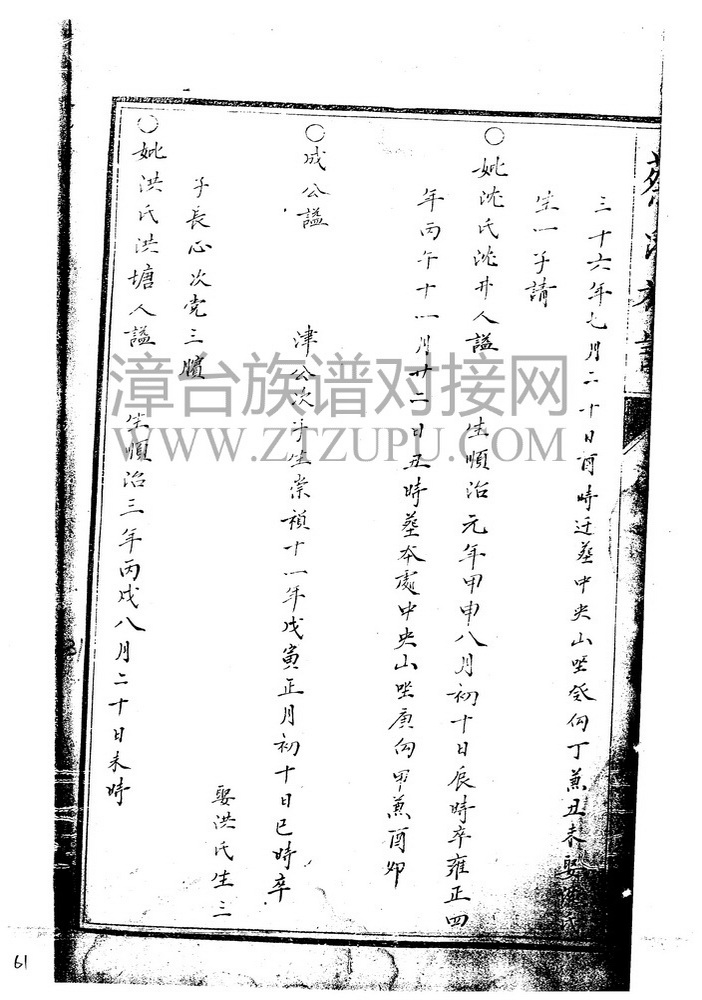 三十六年七月二十日酉時迁葬中央山坐癸向丁兼丑未娶沈氏
生一子請
○妣沈氏沈井人謚　生順治元年甲申八月初十日辰時卒雍正四
年丙午十一月廿二日丑時葬本處中央山坐庚向甲兼酉卯
○成公謚　津公次子生崇禎十一年戊寅正月初十日巳時卒
娶洪氏生三
子長心次党三膑
○妣洪氏洪塘人謚　生順治三年丙戌八月二十日未時
漳台族谱对接网
WWW.ZTZUPU.COM
61